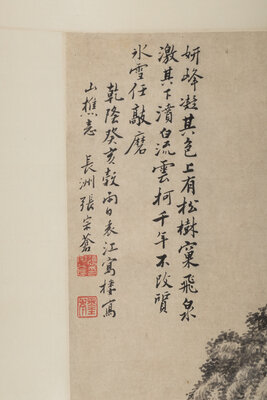 妍峰凝其色上有松樹窠飛泉
激其下濆白流雲柯千年不改質
氷雪任敲磨
乾隆癸亥穀雨日袁江寓樓寫
山樵志 長洲張宗蒼